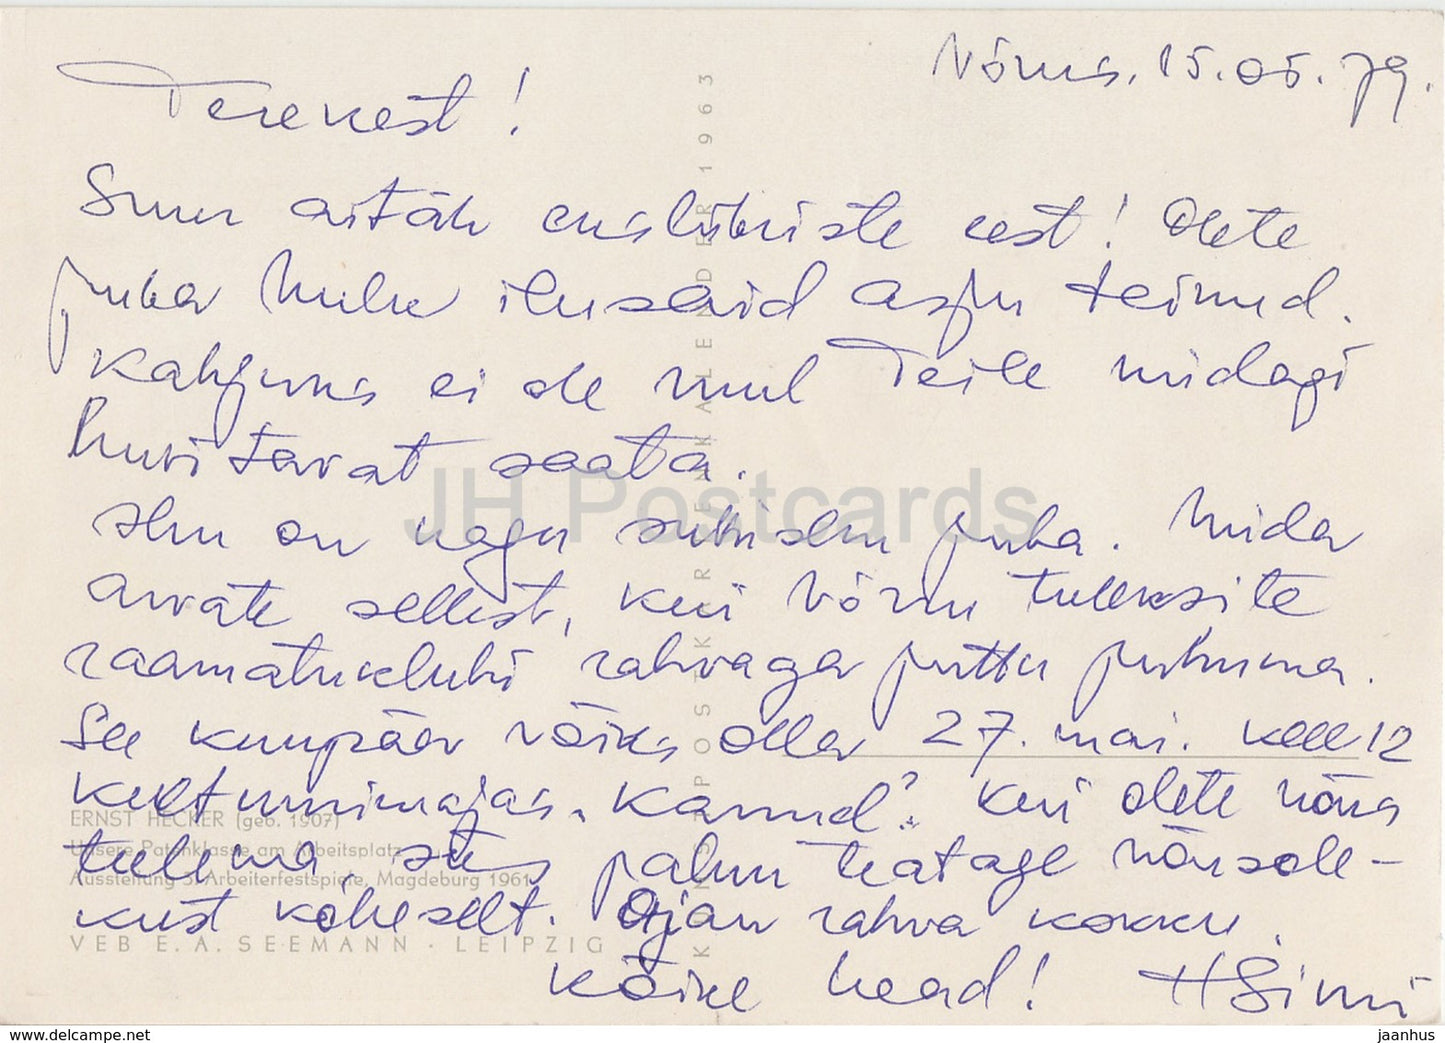 Võrus, 15.05.79.
Terekest!
Suur aitäh eksliibriste eest! Olete
juba hulk ilusaid asju teinud.
Kahjuks ei ole mul Teile midagi
huvitavat saata.
Ilm on nagu suvisem juba. Mida
arvate sellest, kui Võrru tuleksite
raamatuklubi rahvaga juttu puhuma.
See kuupäev võiks olla 27. mai. kell 12
kultuurimajas „Kannel”. Kui olete nõus
tulema, siis palun teatage nõusole-
kust kõheselt. Ajan rahva kokku.
Kõike head! H Simi
KUNSTPOSTKARTENKALENDER 1963
ERNST HECKER (geb. 1907)
Unsere Patenklasse am Arbeitsplatz
Ausstellung 3. Arbeiterfestspiele, Magdeburg 1961
VEB E. A. SEEMANN · LEIPZIG
JH Postcards
www.delcampe.net
jaanhus